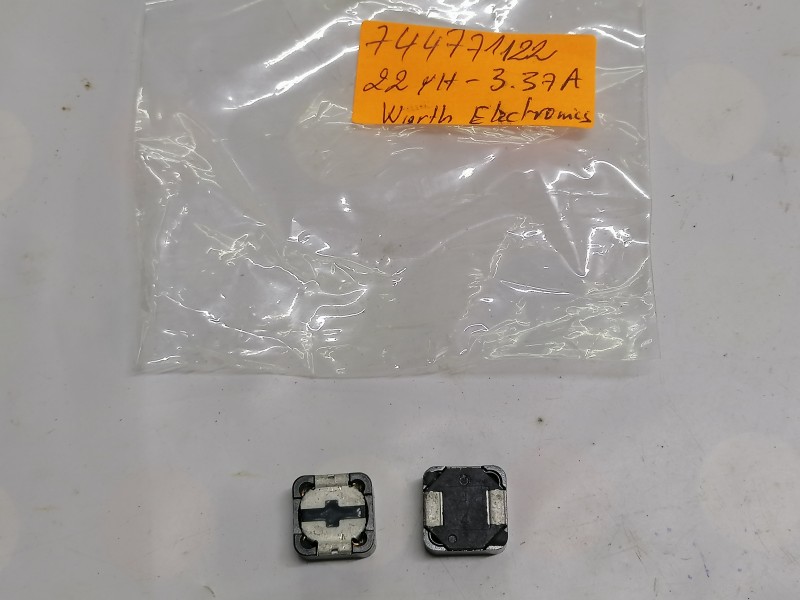 744771122
22 µH - 3.37A
Würth Electronics